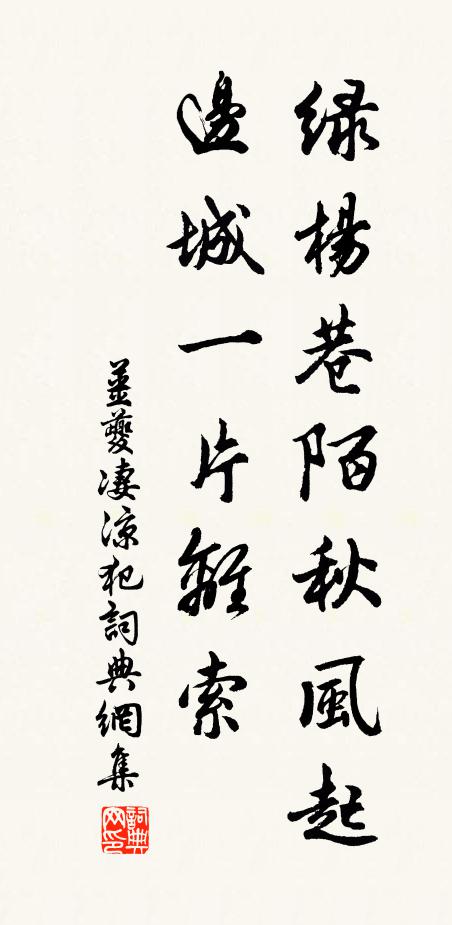 緑楊巷陌秋風起
邊城一片離索
薑夔淒涼犯詞典網集
詞典
网印